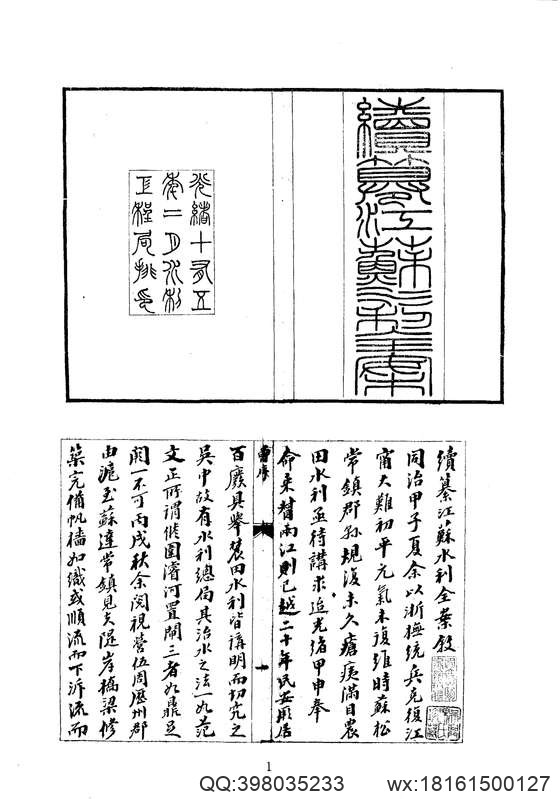 續纂江蘇水利全案
光緒十有五
年二月水利
工程局排印
續纂江蘇水利全案敘
同治甲子夏余以浙撫統兵克復江
甯大難初平元氣未復維時蘇松
常鎮郡縣規復未久瘡痍滿目農
田水利亟待講求迨光緒甲申奉
命來督兩江則已越二十年民安厥居
曾序
一
百廢具舉農田水利皆講明而切究之
吳中故有水利總局其治水之法一如范
文正所謂修圍濬河置閘三者如鼎足
闕一不可丙戌秋余閱視營伍周歷州郡
由滬至蘇達常鎮見夫隄岸橋梁修
築完備帆檣如織或順流而下泝流而
1
QQ:398035233
wx:18161500127